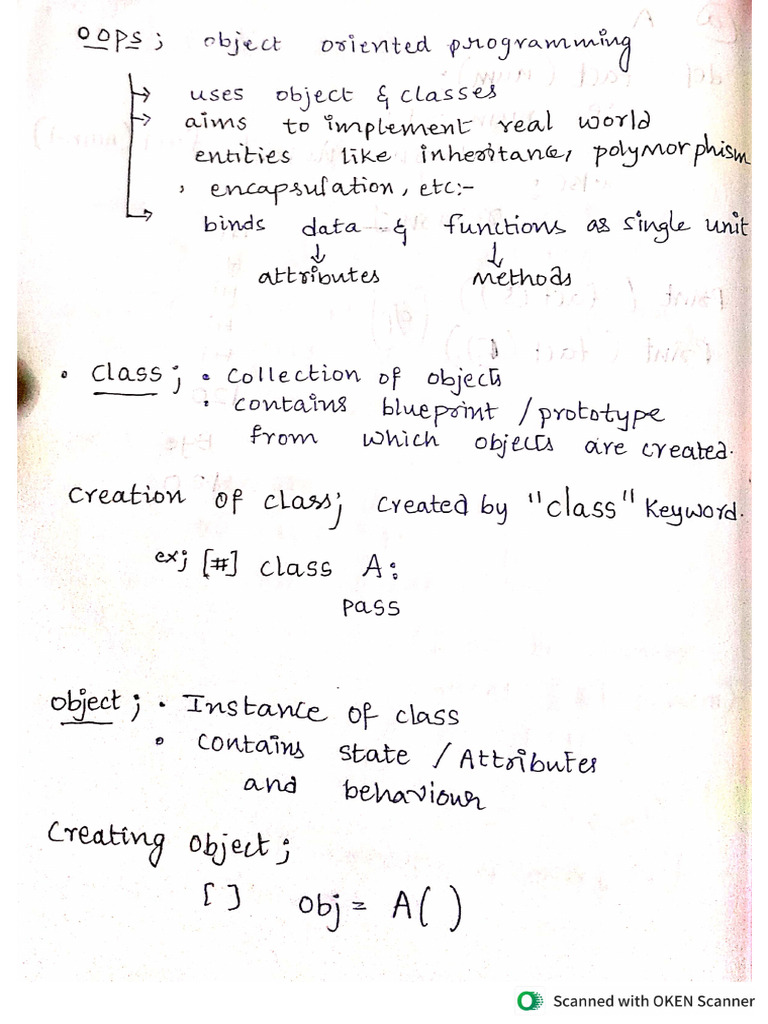 OOPS ; object oriented programming
→ uses object & classes
→ aims to implement real world
entities like inheritance, polymorphism
, encapsulation, etc:-
→ binds data & functions as single unit
↓ ↓
attributes methods
• class ; • collection of objects
• contains blueprint / prototype
from which objects are created.
Creation of class; created by "class" keyword.
ex; [#] class A:
pass
object ; • Instance of class
• contains state / Attributes
and behaviour
Creating object ;
[ ] obj = A( )
Scanned with OKEN Scanner